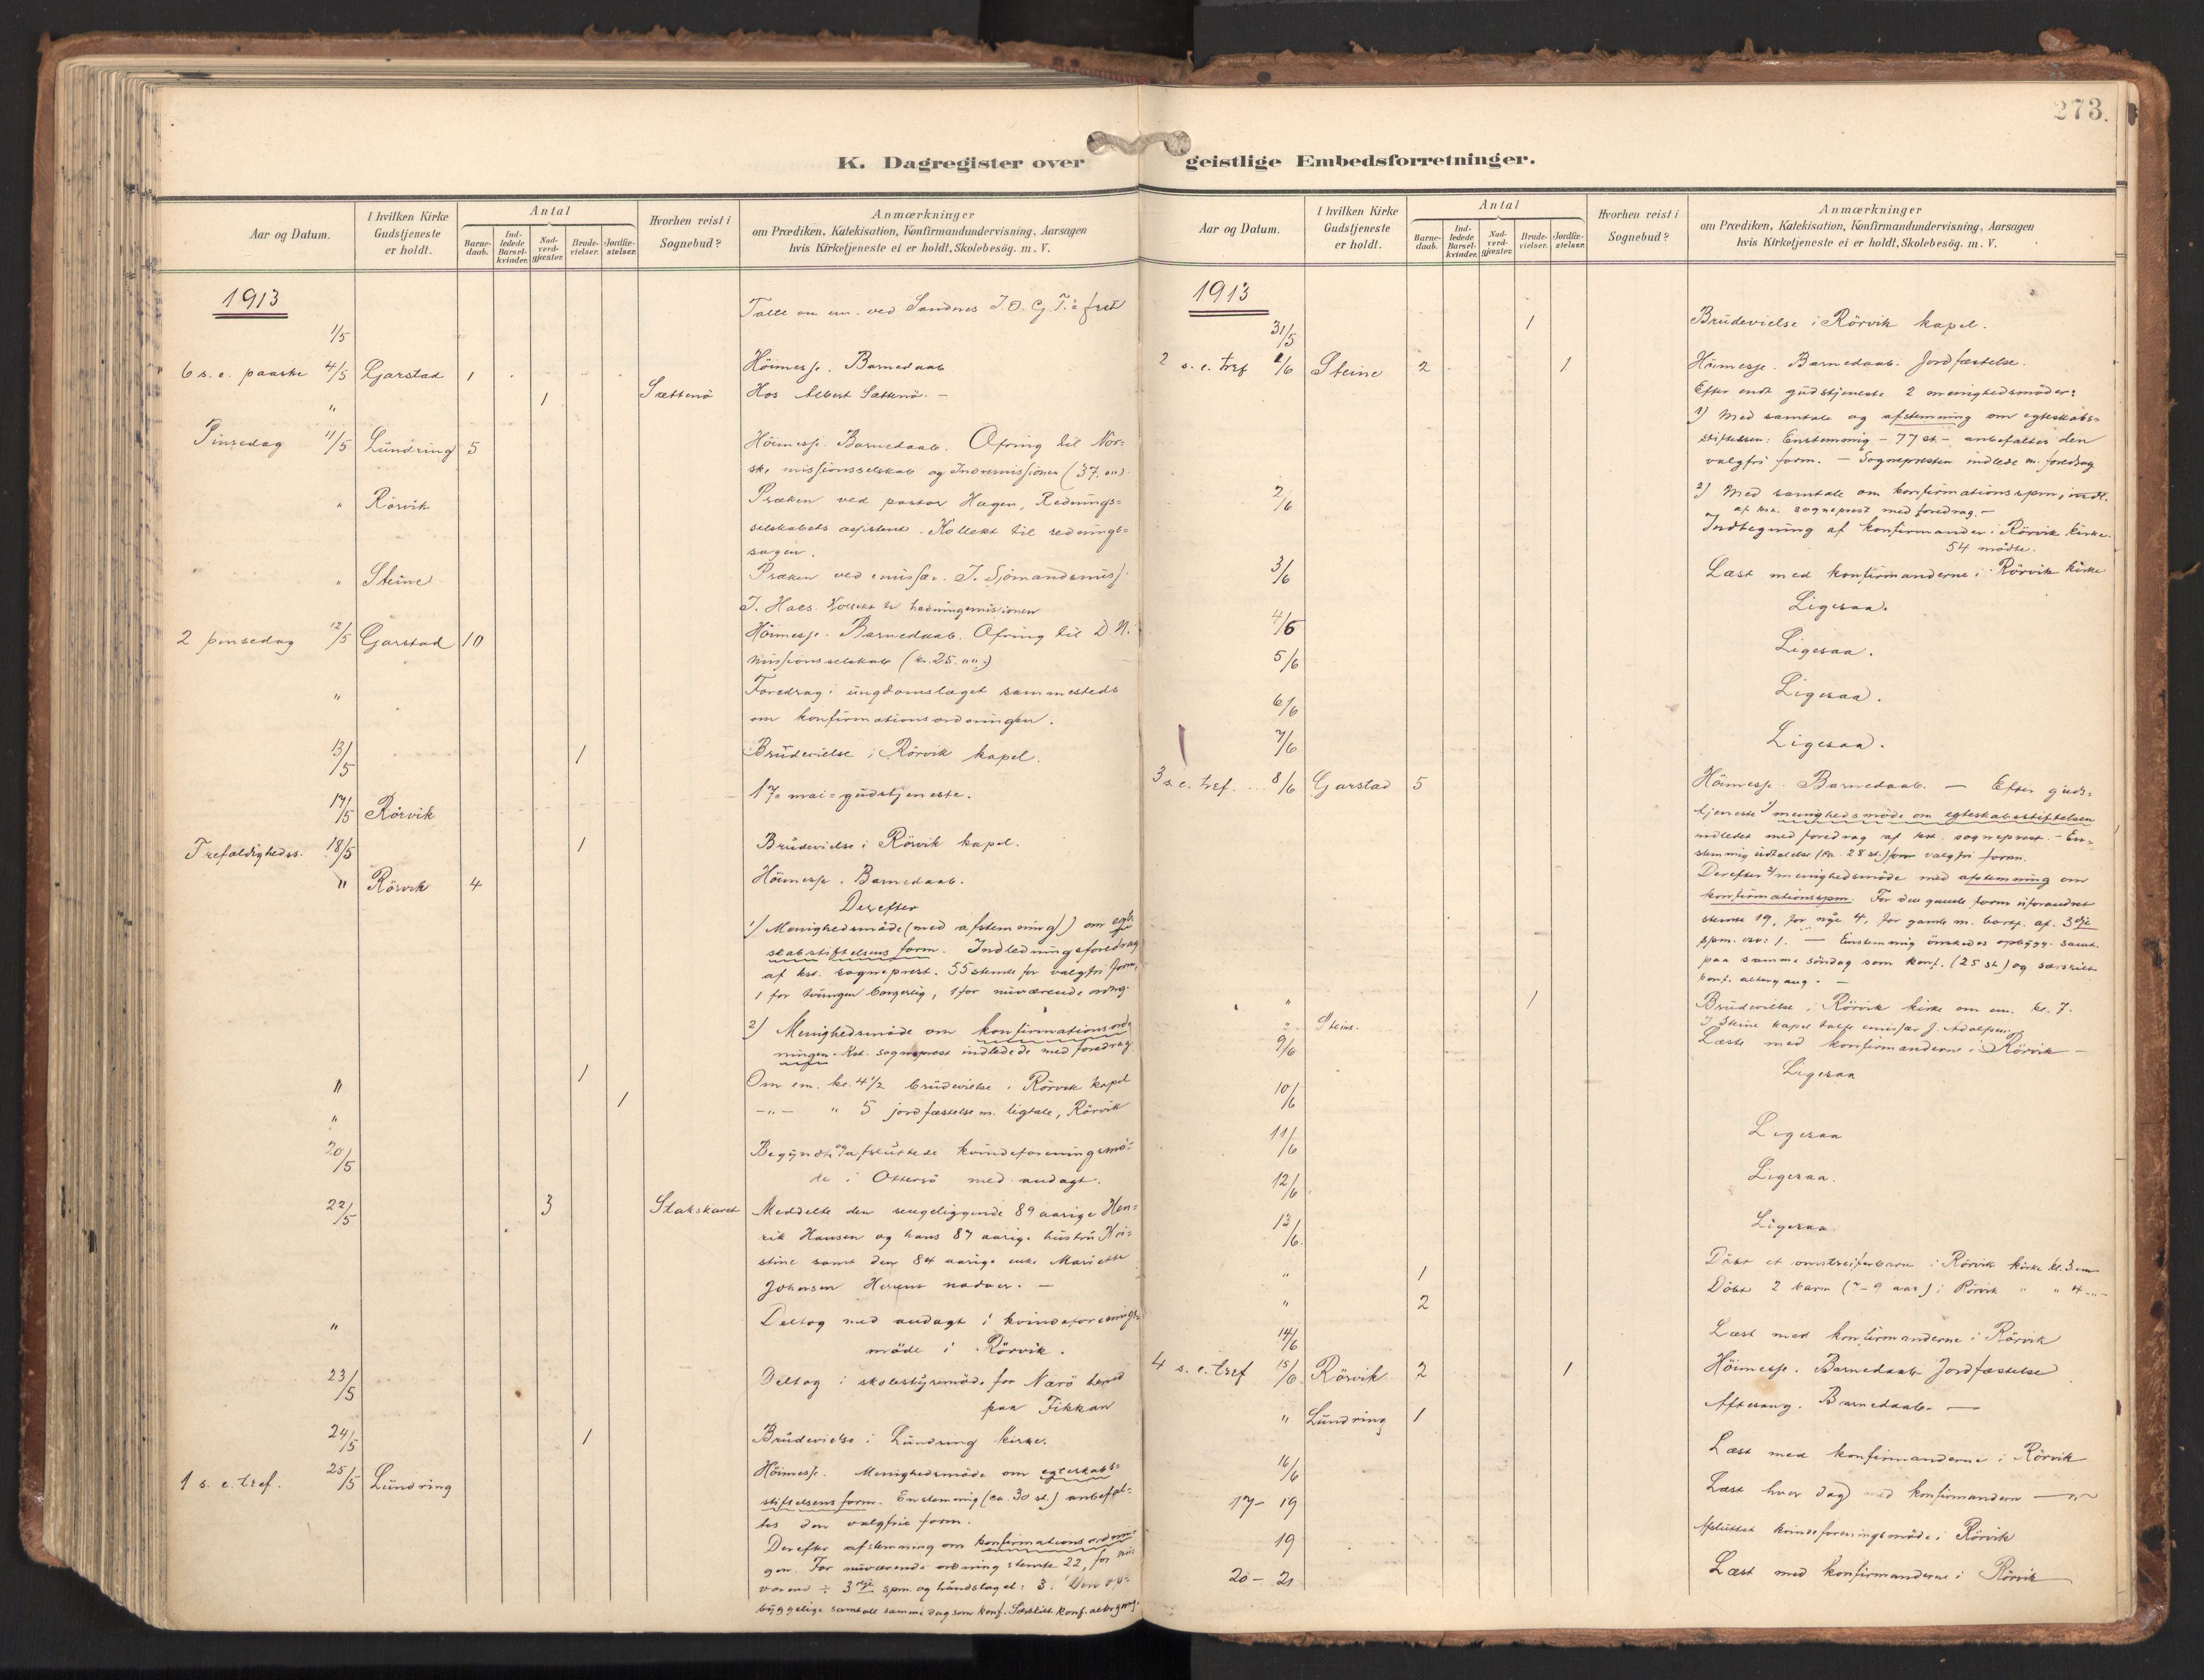 273.
K. Dagregister over
Aar og Datum.
I hvilken Kirke Gudstjeneste er holdt.
Antal
Barne-daab.
Ind-ledede Barsel-kvinder.
Nad-verd-gjæster.
Brude-vielser.
Jordfæ-stelser.
Hvorhen reist i Sognebud?
Anmærkninger
om Prædiken, Katekisation, Konfirmandundervisning, Aarsagen
hvis Kirketjeneste ei er holdt, Skolebesög. m. V.
1913
1/5 Talte om em. ved Sandnes I.O.G.T.s fest
6 s. e. paaske 4/5 Garstad 1 Höimesse. Barnedaab
" 1 Sættenö Hos Albert Sættenö. -
Pinsedag 11/5 Lundring 5 Höimesse. Barnedaab. Ofring til Nor-
ske missionsselskab og Indremissionen (37.00).
" Rörvik Præken ved pastor Hagen, Rednings-
selskabets assistent. Kollekt til rednings-
sagen.
" Steine Præken ved emissær i Sjömandsmiss.
Kollekt til hedningemissionen
2 pinsedag 12/5 Garstad 10 Höimesse. Barnedaab. Ofring til D. N.
missionsselskab (kr. 25.00.)
" Foredrag i ungdomslaget sammesteds
om konfirmationsordningen.
13/5 1 Brudevielse i Rörvik kapel.
17/5 Rörvik 17-mai-gudstjeneste.
Trefoldighedss. 18/5 1 Brudevielse i Rörvik kapel.
" Rörvik 4 Höimesse. Barnedaab.
Derefter
1) Menighedsmöde (med afstemning) om egte-
skabsstiftelsens form. Indledningsforedrag
af kst. sogneprest. 55 stemte for valgfri form,
1 for tvungen borgerlig, 1 for nuværende ordng.
2) Menighedsmöde om konfirmationsord-
ningen. Kst. sogneprest indledede med foredrag.
" 1 Om em. kl. 4 1/2 brudevielse i Rörvik kapel
" 1 -"- " 5 jordfæstelse m. ligtale, Rörvik
20/5 Begyndte og afsluttede kvindeforeningsmö-
de i Ottersö med andagt.
22/5 3 Stakskaret Meddelte den sengeliggende 89 aarige Hen-
rik Hansen og hans 87 aarige hustru Kri-
stine samt den 84 aarige enke Mariette
Johansen Herrens nadver. -
" Deltog med andagt i kvindeforenings-
möde i Rörvik.
23/5 Deltog i skolestyremöde for Nærö herred
paa Fikkan
24/5 1 Brudevielse i Lundring kirke.
1 s. e. tref. 25/5 Lundring Höimesse. Menighedsmöde om egteskabs-
stiftelsens form. Enstemmig (ca. 30 st.) anbefal-
tes den valgfrie form.
Derefter afstemning om konfirmationsordnin-
gen. For nuværende ordning stemte 22, for nu-
værend ÷ 3dje spm. og håndslaget: 3. Den op-
byggelige samtale samme dag som konf. Særskilt konf. altergang.
geistlige Embedsforretninger.
Aar og Datum.
I hvilken Kirke Gudstjeneste er holdt.
Antal
Barne-daab.
Ind-ledede Barsel-kvinder.
Nad-verd-gjæster.
Brude-vielser.
Jordfæ-stelser.
Hvorhen reist i Sognebud?
Anmærkninger
om Prædiken, Katekisation, Konfirmandundervisning, Aarsagen
hvis Kirketjeneste ei er holdt, Skolebesög. m. V.
1913
31/5 1 Brudevielse i Rörvik kapel.
2 s. e. tref 1/6 Steine 2 1 Höimesse. Barnedaab. Jordfæstelse.
Efter endt gudstjeneste 2 menighedsmöder:
1) Med samtale og afstemning om egteskabs-
stiftelsen: Enstemmig - 77 st - anbefaltes den
valgfri form. - Sognepresten indlede m. foredrag
2) Med samtale om konfirmationsspm, indl.
af kst. sogneprest med foredrag. -
2/6 Indtegning af konfirmander i Rörvik kirke.
54 mödte.
3/6 Læst med konfirmanderne i Rörvik kirke
4/6 Ligesaa.
5/6 Ligesaa.
6/6 Ligesaa.
7/6 Ligesaa.
3 s. e. tref. 8/6 Garstad 5 Höimesse. Barnedaab. - Efter guds-
tjeneste 1) menighedsmöde om egteskabsstiftelsen
indledet med foredrag af kst. sogneprest. - En-
stemmig udtalelse (ca. 28 st.) for valgfri form.
Derefter 2) menighedsmöde med afstemning om
konfirmationsspm. For den gamle form uforandret
stemte 19, for nye 4, for gamle m. bortf. af 3dje
spm. osv: 1. - Enstemmig önskedes opbygg. samt.
paa samme söndag som konf. (25 st) og særskilt
konf. altergang. -
" 1 Brudevielse i Rörvik kirke om em. kl. 7.
" Steine. I Steine kapel talte emissær J. Adolfsen.
9/6 Læste med konfirmanderne i Rörvik -
10/6 Ligesaa
11/6 Ligesaa
12/6 Ligesaa.
13/6 Ligesaa
" 1 Döbt et omstreiferbarn i Rörvik kirke kl. 3 em
" 2 Döbt 2 barn (7-9 aar) i Rörvik " " 4 -"-
14/6 Læst med konfirmanderne i Rörvik
4 s. e. tref 15/6 Rörvik 2 1 Höimesse. Barnedaab. Jordfæstelse
" Lundring 1 Aftesang. Barnedaab. -
16/6 Læst med konfirmanderne i Rörvik
17- 19 Læst hver dag med konfirmandern -"-
19 Afsluttet kvindeforeningsmöde i Rörvik
20- 21 Læst med konfirmanderne i Rörvik